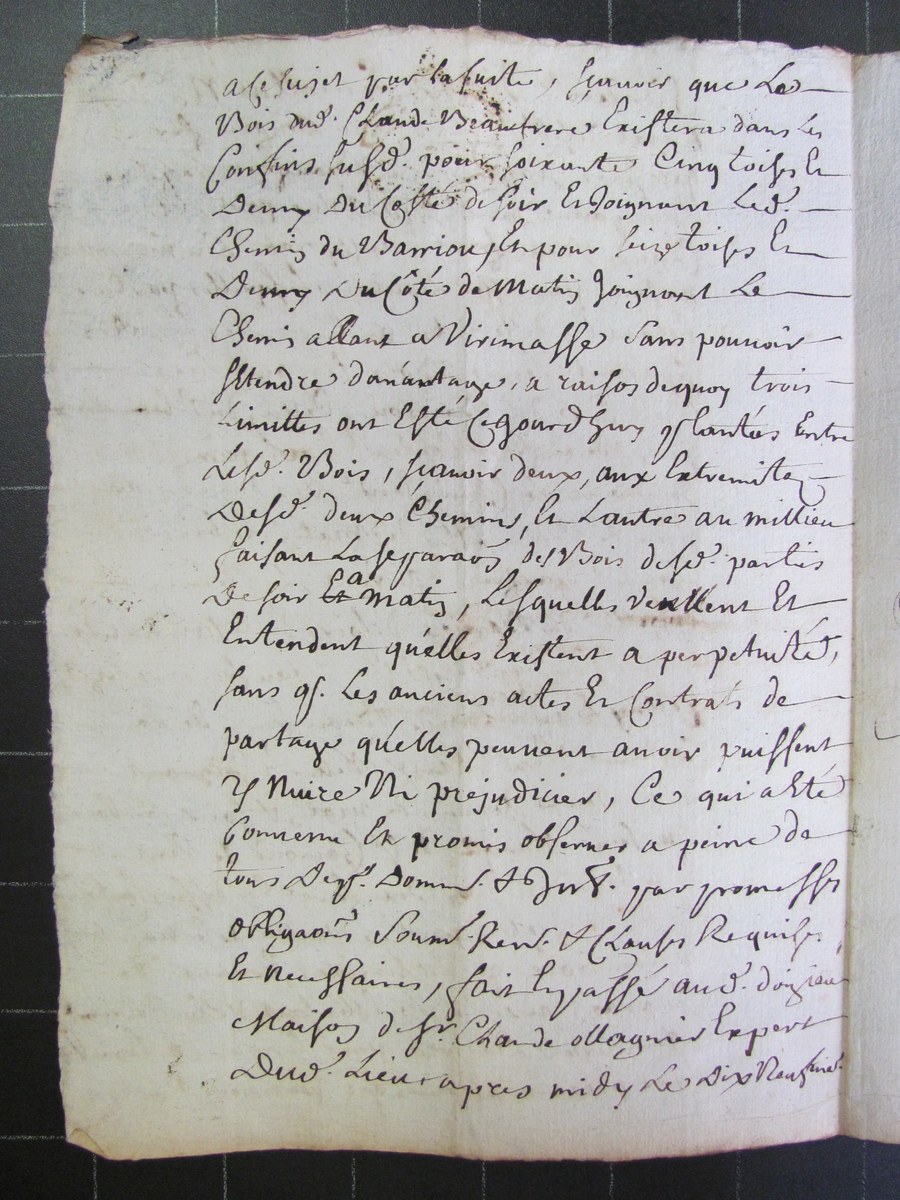 a ce sujet par la suite, sçauoir que Le
Bois dud. Claude Beaufrere Existera dans les
Confins susd. pour soixante Cinq toises Et
Demy Du Costé de soir Et Joignant Led.
Chemin du Barriou, Et pour seize toises Et
Demy Du Côté de Matin Joignant Le
Chemin allant a Virimasse sans pouuoir
sEtendre dauantage, a raison dequoy trois
Limittes ont Esté Cejourdhuy plantées Entre
Lesd. Bois, sçauoir deux, aux Extremitez
Desd. deux Chemins, Et Lautre au millieu
faisant La separaōn des Bois desd. parties
De soir Et a matin, Lesquelles veullent Et
Entendent qu'elles Existent a perpetuité,
sans q. Les anciens actes Et Contrats de
partage qu'elles peuuent auoir puissent
y Nuire Ni prejudicier, Ce qui a Esté
Conuenu Et promis obseruer a peine de
tous Dep. Domm. & Int. par promesses
obligaōns Soum. Ren. & Clauses Requises
Et Necessaires, fait Et passé aud.
Maison de sr. Claude Magnier Expert
Dud. Lieu apres midy Le Dix Neufuie.